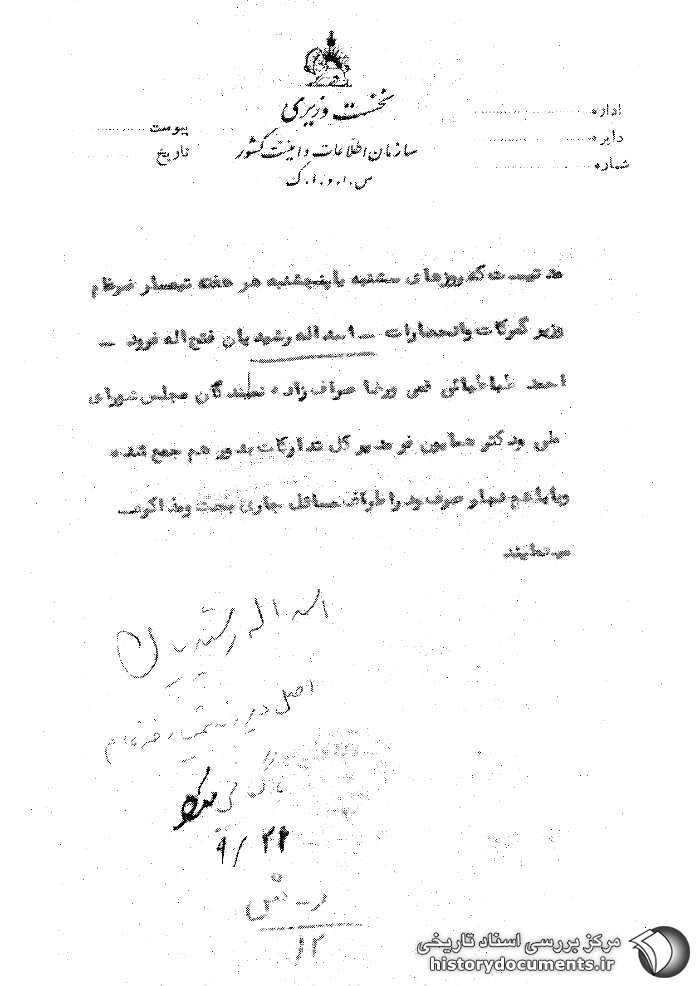 نخست وزیری
سازمان اطلاعات و امنیت کشور
س.ا.و.ا.ک
اداره
دایره
شماره
پیوست
تاریخ
مدتیست که روزهای سه‌شنبه یا پنجشنبه هر هفته تیمسار ضرغام
وزیر گمرکات و انحصارات – اسداله رشیدیان فتح اله فرود –
احمد طباطبائی قمی ورضا صراف زاده نمیندگان مجلس شورای
ملی ودکتر همایون فر مدیر کل تدارکات بدور هم جمع شده
وبا هم نهار صرف ودراطراف مسائل جاری بحث ومذاکره
مینمایند
اسداله رشیدیان
اصل در
۹/۲۲
۱۲
مرکز بررسی اسناد تاریخی
historydocuments.ir